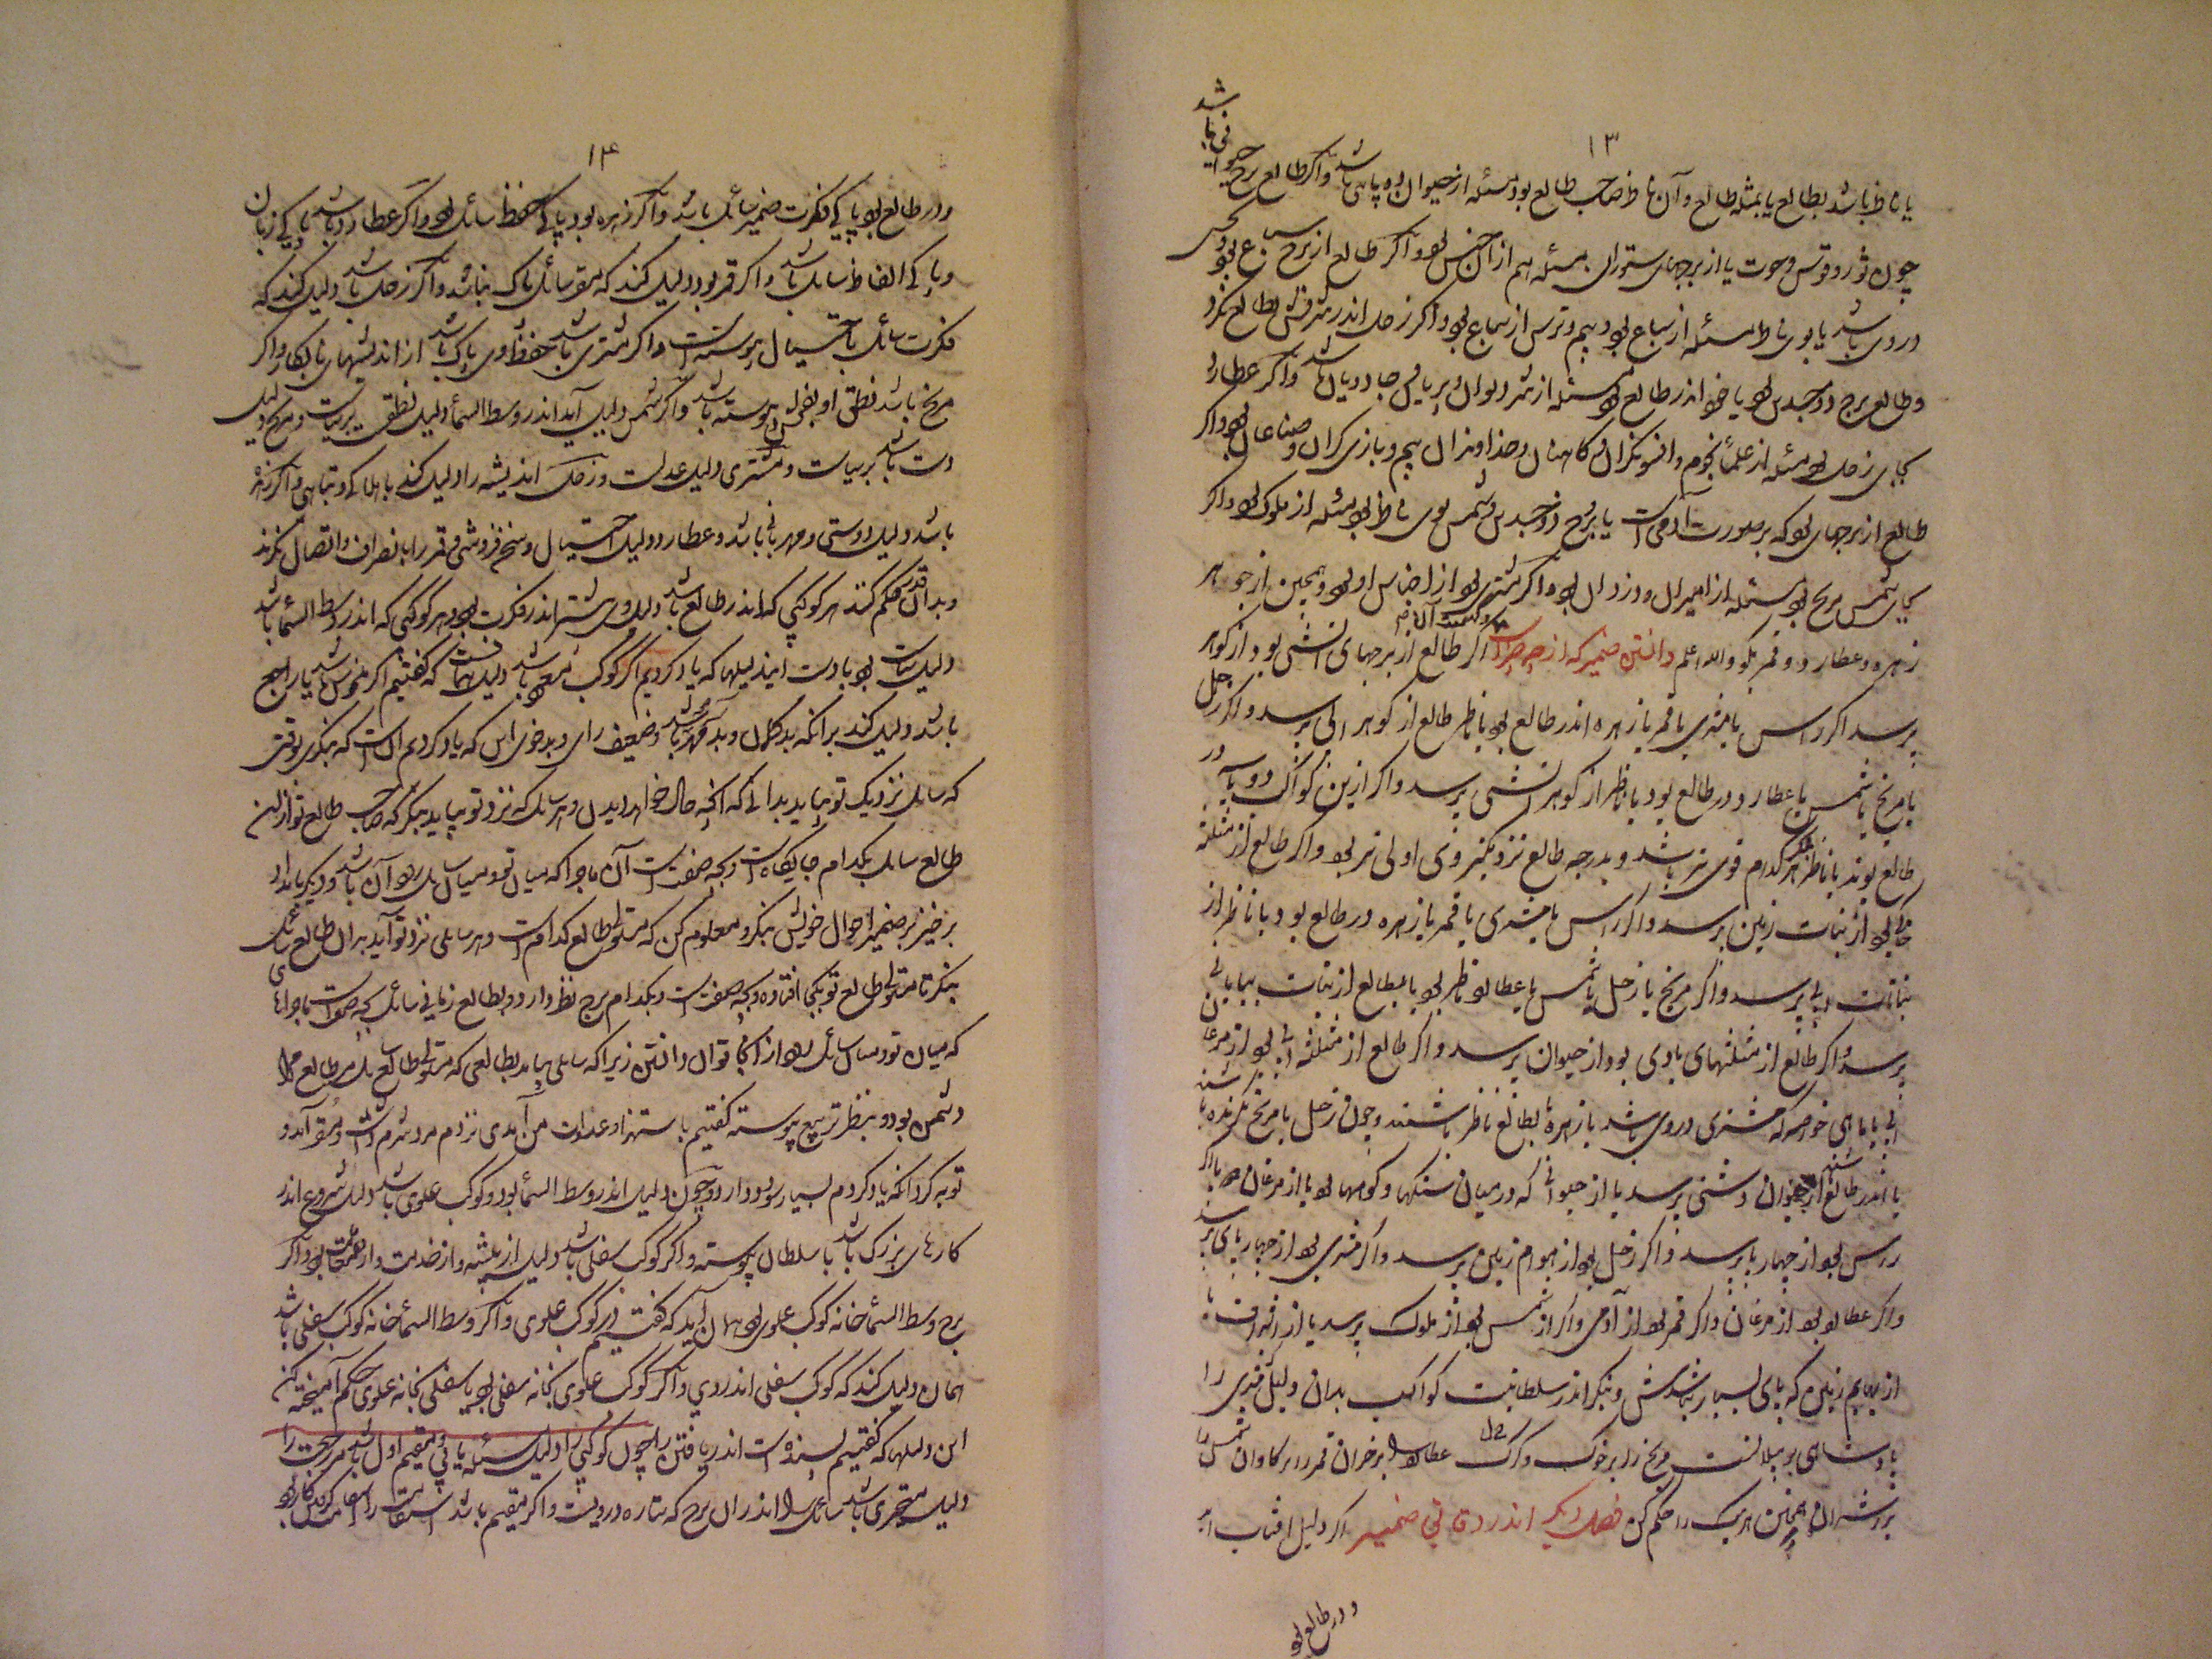 ۱۳
یا ناظر باشد بطالع یا بمثلثه طالع و آن ناظر صاحب طالع بود مسئله از حیوان ده پاهی باشد و اگر طالع برج حیوانی باشد
چون ثور و قوس و حوت یا از برجهای ستوران مسئله هم از آن جنس بود و اگر طالع از برج سباع بود و نحس
در وی باشد یا بوی ناظر مسئله از سباع بود و بیم و ترس از سباع بود و اگر زحل اندر شرفش بطالع نگرد
و طالع برج دو جسدین بود یا خود اندر طالع بود مسئله از دیوان و پریان و جادویان باشد و اگر عطارد
بجای زحل بود مسئله از علمای نجوم و افسونگران و کاهنان و خداوندان بیم و بازی گران و صناعان بود و اگر
طالع از برجهای بود که بر صورت آدمی است یا برج دو جسدین و شمس بوی ناظر بود مسئله از ملوک بود و اگر
بجای شمس مریخ بود مسئله از امیران و دزدان بود و اگر مشتری بود از اجناس او بود و همچنین از جوهر
زهره و عطارد و قمر بگو والله اعلم دانستن ضمیر که از چه چیز است اگر طالع از برجهای آتشی بود از گوهر
پرسد اگر راس یا مشتری یا قمر یا زهره اندر طالع بود یا ناظر طالع از گوهر آبی پرسد و اگر زحل
یا مریخ یا شمس یا عطارد در طالع بود یا ناظر از گوهر آتشی پرسد و اگر ازین کواکب دو یا سه در
طالع بوند یا ناظر بنگر هر کدام قوی تر باشد و بدرجه طالع نزدیکتر وی اولی تر بود و اگر طالع از مثلثه
خاکی بود از نبات زمین پرسد و اگر راس یا مشتری یا قمر یا زهره در طالع بود یا ناظر از
نباتات آبی پرسد و اگر مریخ یا زحل یا شمس یا عطارد ناظر بود یا بطالع از نبات بیابانی
پرسد و اگر طالع از مثلثهای بادی بود از حیوان پرسد و اگر طالع از مثلثه آبی بود از مرغان
آبی یا ماهی خواصه که مشتری در وی باشد یا زهره بطالع ناظر باشند و چون زحل یا مریخ نگرنده باشند
یا اندر طالع باشند از حیوان دشتی پرسد یا از حیوانی که در میان سنگها و کوهها بود یا از مرغان و اگر
راس بود از چهارپا پرسد و اگر زحل بود از هوام زمین پرسد و اگر مشتری بود از چهارپای پرسد
و اگر عطارد بود از مرغان و اگر قمر بود از آدمی و اگر از شمس بود از ملوک پرسد یا از
از بهایم زمین که پای بسیار باشدش و بنگر اندر سلطانیت کواکب بدان دلیل مشتری را
پادشاهی بر پیلانست مریخ را بر خوک و گرگ عطارد را بر خران قمر را بر گاوان شمس را
بر شیران همچنین هر یک را حکم کن فصل دیگر اندر دقایق ضمیر اگر دلیل آفتاب
و در طالع بود
۱۴
و در طالع بود پاکی فکرت ضمیر سائل باشد و اگر زهره بود پاکی حفظ سائل بود و اگر عطارد باشد پاکی زبان
و پاکی الفاظ سائل باشد و اگر قمر بود دلیل کند که سر سائل پاک نباشد و اگر زحل باشد دلیل کند که
فکرت سائل باحتیال پیوسته است و اگر مشتری باشد حفظ وی پاک باشد از اندیشهای نابکار و اگر
مریخ باشد نطق او بفحش پیوسته باشد و اگر شمس دلیل آید اندر وسط السما دلیل نطق بریاست و مریخ دلیل
دست باشد بریاست و مشتری دلیل عدلست و زحل اندیشه را دلیل کند باهلاکی و تباهی و اگر زهره
باشد دلیل دوستی و مهربانی باشد و عطارد دلیل احتیال و سخن فروشی و قمر را بانصراف و اتصال نگرند
و بدان قدر حکم کنند هر کوکبی که اندر طالع باشد دلیل وی بیشتر اندر فکرت بود و هر کوکبی که اندر وسط السما باشد
دلیل ثبات بود بادست اینذ لیلها که یاد کردیم اگر کوکب مسعود باشد دلیل همانست که گفتیم اگر منحوس باشد یا راجع
باشد دلیل کند برانکه بدگمان و بد مهر باشد و ضعیف رای و بدخوی اس که یاد کردیم انست که بنگری بوقتی
که سائل نزدیک تو بیاید بدانی که آنچه حال خواهد بدن و هر سائل که نزد تو بیاید بنگر که صاحب طالع تو ازین
طالع سائل بکدام جایگاه است و بچه صفتست آن ماجرا که میان تو و میان سائل رود آن باشد و دیگر بامداد
برخیز بر ضمیر احوال خویش بنگر و معلوم کن که مستولی طالع کدام است و هر سائلی نزد تو آید بدان طالع سائل
بنگر تا مستولی طالع تو بکجا افتاده و بچه صفتست و بکدام برج نظر دارد و بطالع زمانی سائل بچه صورتست ماجراهای
که میان تو و میان سائل رود از آنجا توان دانستن زیرا که سائلی بیامد بطالعی که مستولی طالع سائل بر طالع ما
دشمن بود و بنظر تربیع پیوسته گفتیم باستهزا و عداوت من آمدی نزدم مرد شرم داشت و مقر آمد و
توبه کرد آنکه یاد کردم بسیار سود دارد و چون دلیل اندر وسط السما بود و کوکب علوی باشد دلیل شروع اندر
کارهای بزرگ باشد با سلطان پیوسته و اگر کوکب سفلی باشد دلیل از پیشه و از خدمت و از معاملت بود و اگر
برج وسط السما خانه کوکب علوی بود همان آید که گفتیم از کوکب علوی و اگر وسط السما خانه کوکب سفلی باشد
همان دلیل کند که کوکب سفلی اندر وی و اگر کوکب علوی بخانه سفلی بود یا سفلی بخانه علوی حکم آمیخته کن
این دلیلها که گفتیم بسنده است اندر یافتن را چون کوکبی را دلیل مسئله یابی و مقیم اول باشد مر رجعت را
دلیل متحیری باشد سائل را اندران برج که ستاره درویست و اگر مقیم باشد استقامت را